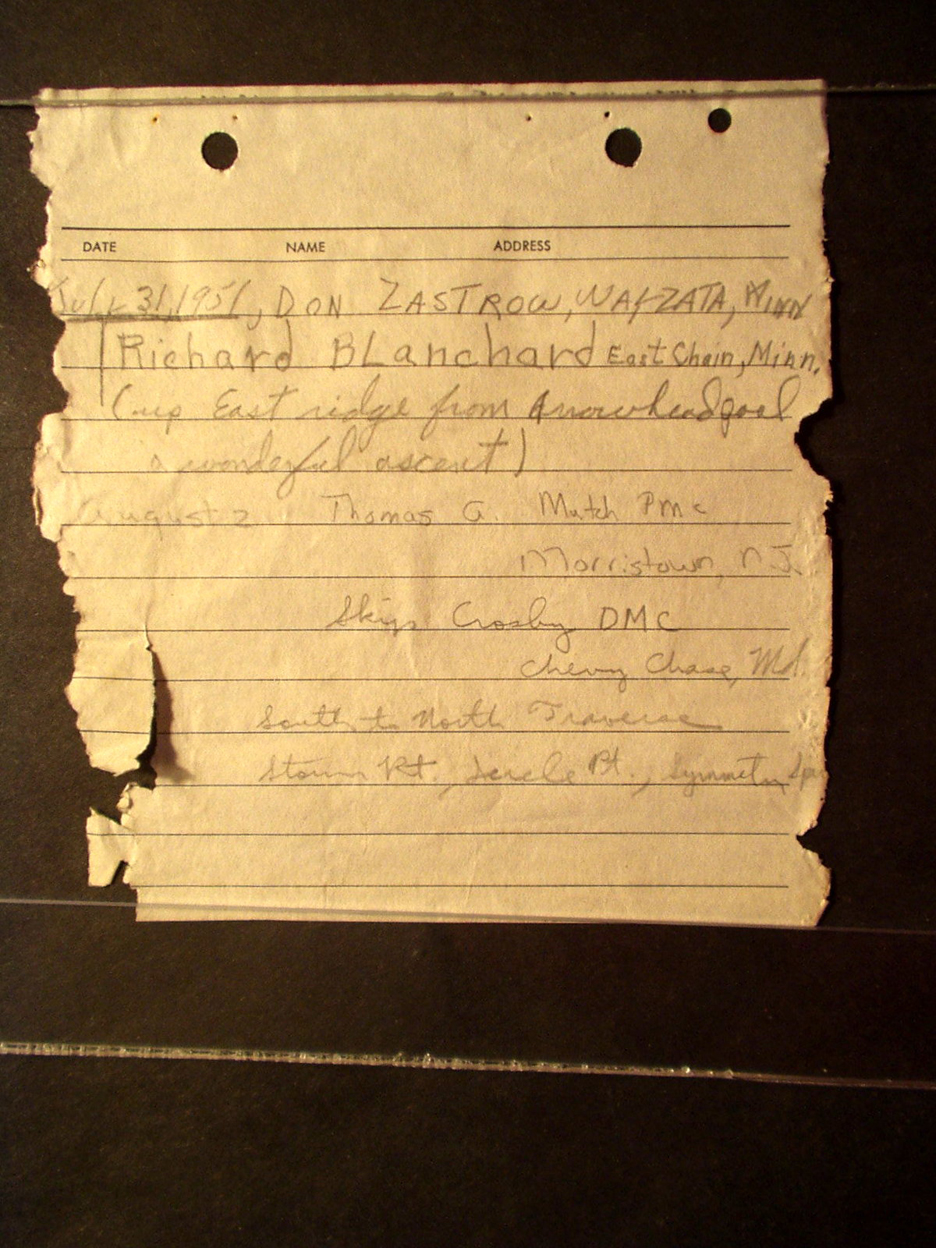 DATE NAME ADDRESS
July 31, 1951, DON ZASTROW, WAYZATA, MINN
Richard BLanchard East Chain, Minn.
(up East ridge from Arrowhead pool
a wonderful ascent)
August 2 Thomas A. Mutch PMC
Morristown, N.J.
Skip Crosby DMC
Chevy Chase, Md.
South to North Traverse
Storm Pt., Pt., Symmetry Spi